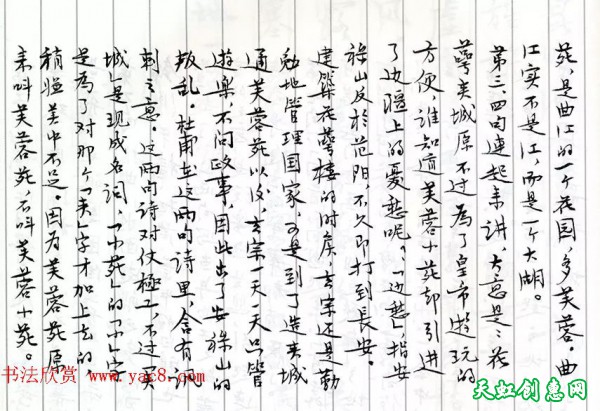 苑，是曲江的一个花园，多芙蓉。曲
江实不是江，而是一个大湖。
第三、四句连起来讲，大意是：花
萼夹城原不过为了皇帝游玩的
方便，谁知道芙蓉小苑却引进
了边疆上的忧愁呢？「边愁」指安
禄山反于范阳，不久即打到长安。
建筑花萼楼的时候，玄宗还是勤
勉地管理国家，可是到了造夹城
通芙蓉苑以后，玄宗一天天只管
游乐，不问政事，因此出了安禄山的
叛乱。杜甫在这两句诗里，含有讽
刺之意。这两句诗对仗极工，不过「夹
城」是现成名词，「小苑」的「小」字
是为了对那个「夹」字才加上去的，
稍嫌美中不足。因为芙蓉苑原
来叫芙蓉苑，不叫芙蓉小苑。
书法欣赏 www.yac8.com
天虹创意网